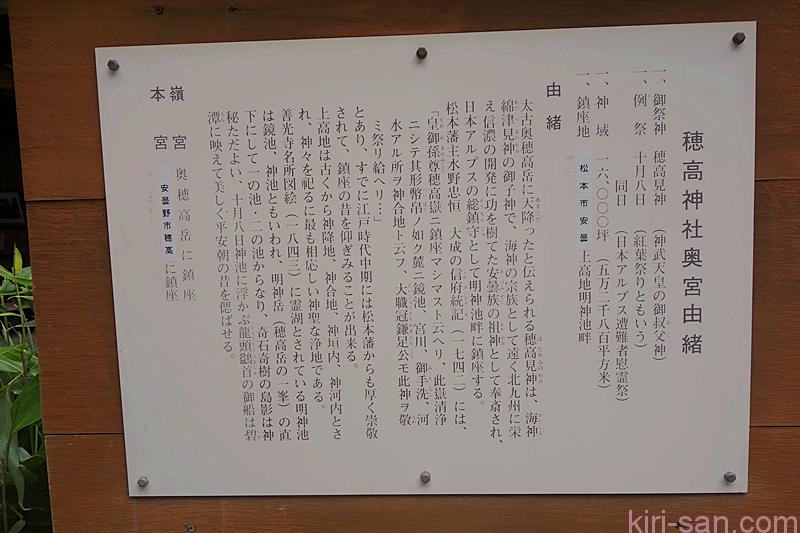 穂高神社奥宮由緒
一、御祭神　穂高見神　（神武天皇の御叔父神）
一、例　祭　十月八日　（紅葉祭りともいう）
同日　（日本アルプス遭難者慰霊祭）
一、神　域　一六、〇〇〇坪（五万二千八百平方米）
一、鎮座地　松本市安曇　上高地明神池畔
由　緒
太古奥穂高岳に天降ったと伝えられる穂高見神は、海神
綿津見神の御子神で、海神の宗族として遠く北九州に栄
え信濃の開発に功を樹てた安曇族の祖神として奉斎され、
日本アルプスの総鎮守として明神池畔に鎮座する。
松本藩主水野忠恒　大成の信府統記（一七四二）には、
「皇御孫尊穂高嶽ニ鎮座マシマスト云ヘリ、此嶽清浄
ニシテ其形幣帛ノ如ク麓ニ鏡池、宮川、御手洗、河
水アル所ヲ神合地ト云フ、大職冠鎌足公モ此神ヲ敬
ミ祭リ給ヘリ…」
とあり、すでに江戸時代中期には松本藩からも厚く崇敬
されて、鎮座の昔を仰ぎみることが出来る。
上高地は古くから神降地、神合地、神垣内、神河内とさ
れ、神々を祀るに最も相応しい神聖な浄地である。
善光寺名所図絵（一八四三）に霊湖とされている明神池
は鏡池、神池ともいわれ、明神岳（穂高岳の一峯）の直
下にして一の池・二の池からなり、奇石奇樹の島影は神
秘ただよい、十月八日神池に浮かぶ龍頭鷁首の御船は碧
潭に映えて美しく平安朝の昔を偲ばせる。
嶺　宮　奥穂高岳に鎮座
本　宮　安曇野市穂高に鎮座
kiri-san.com